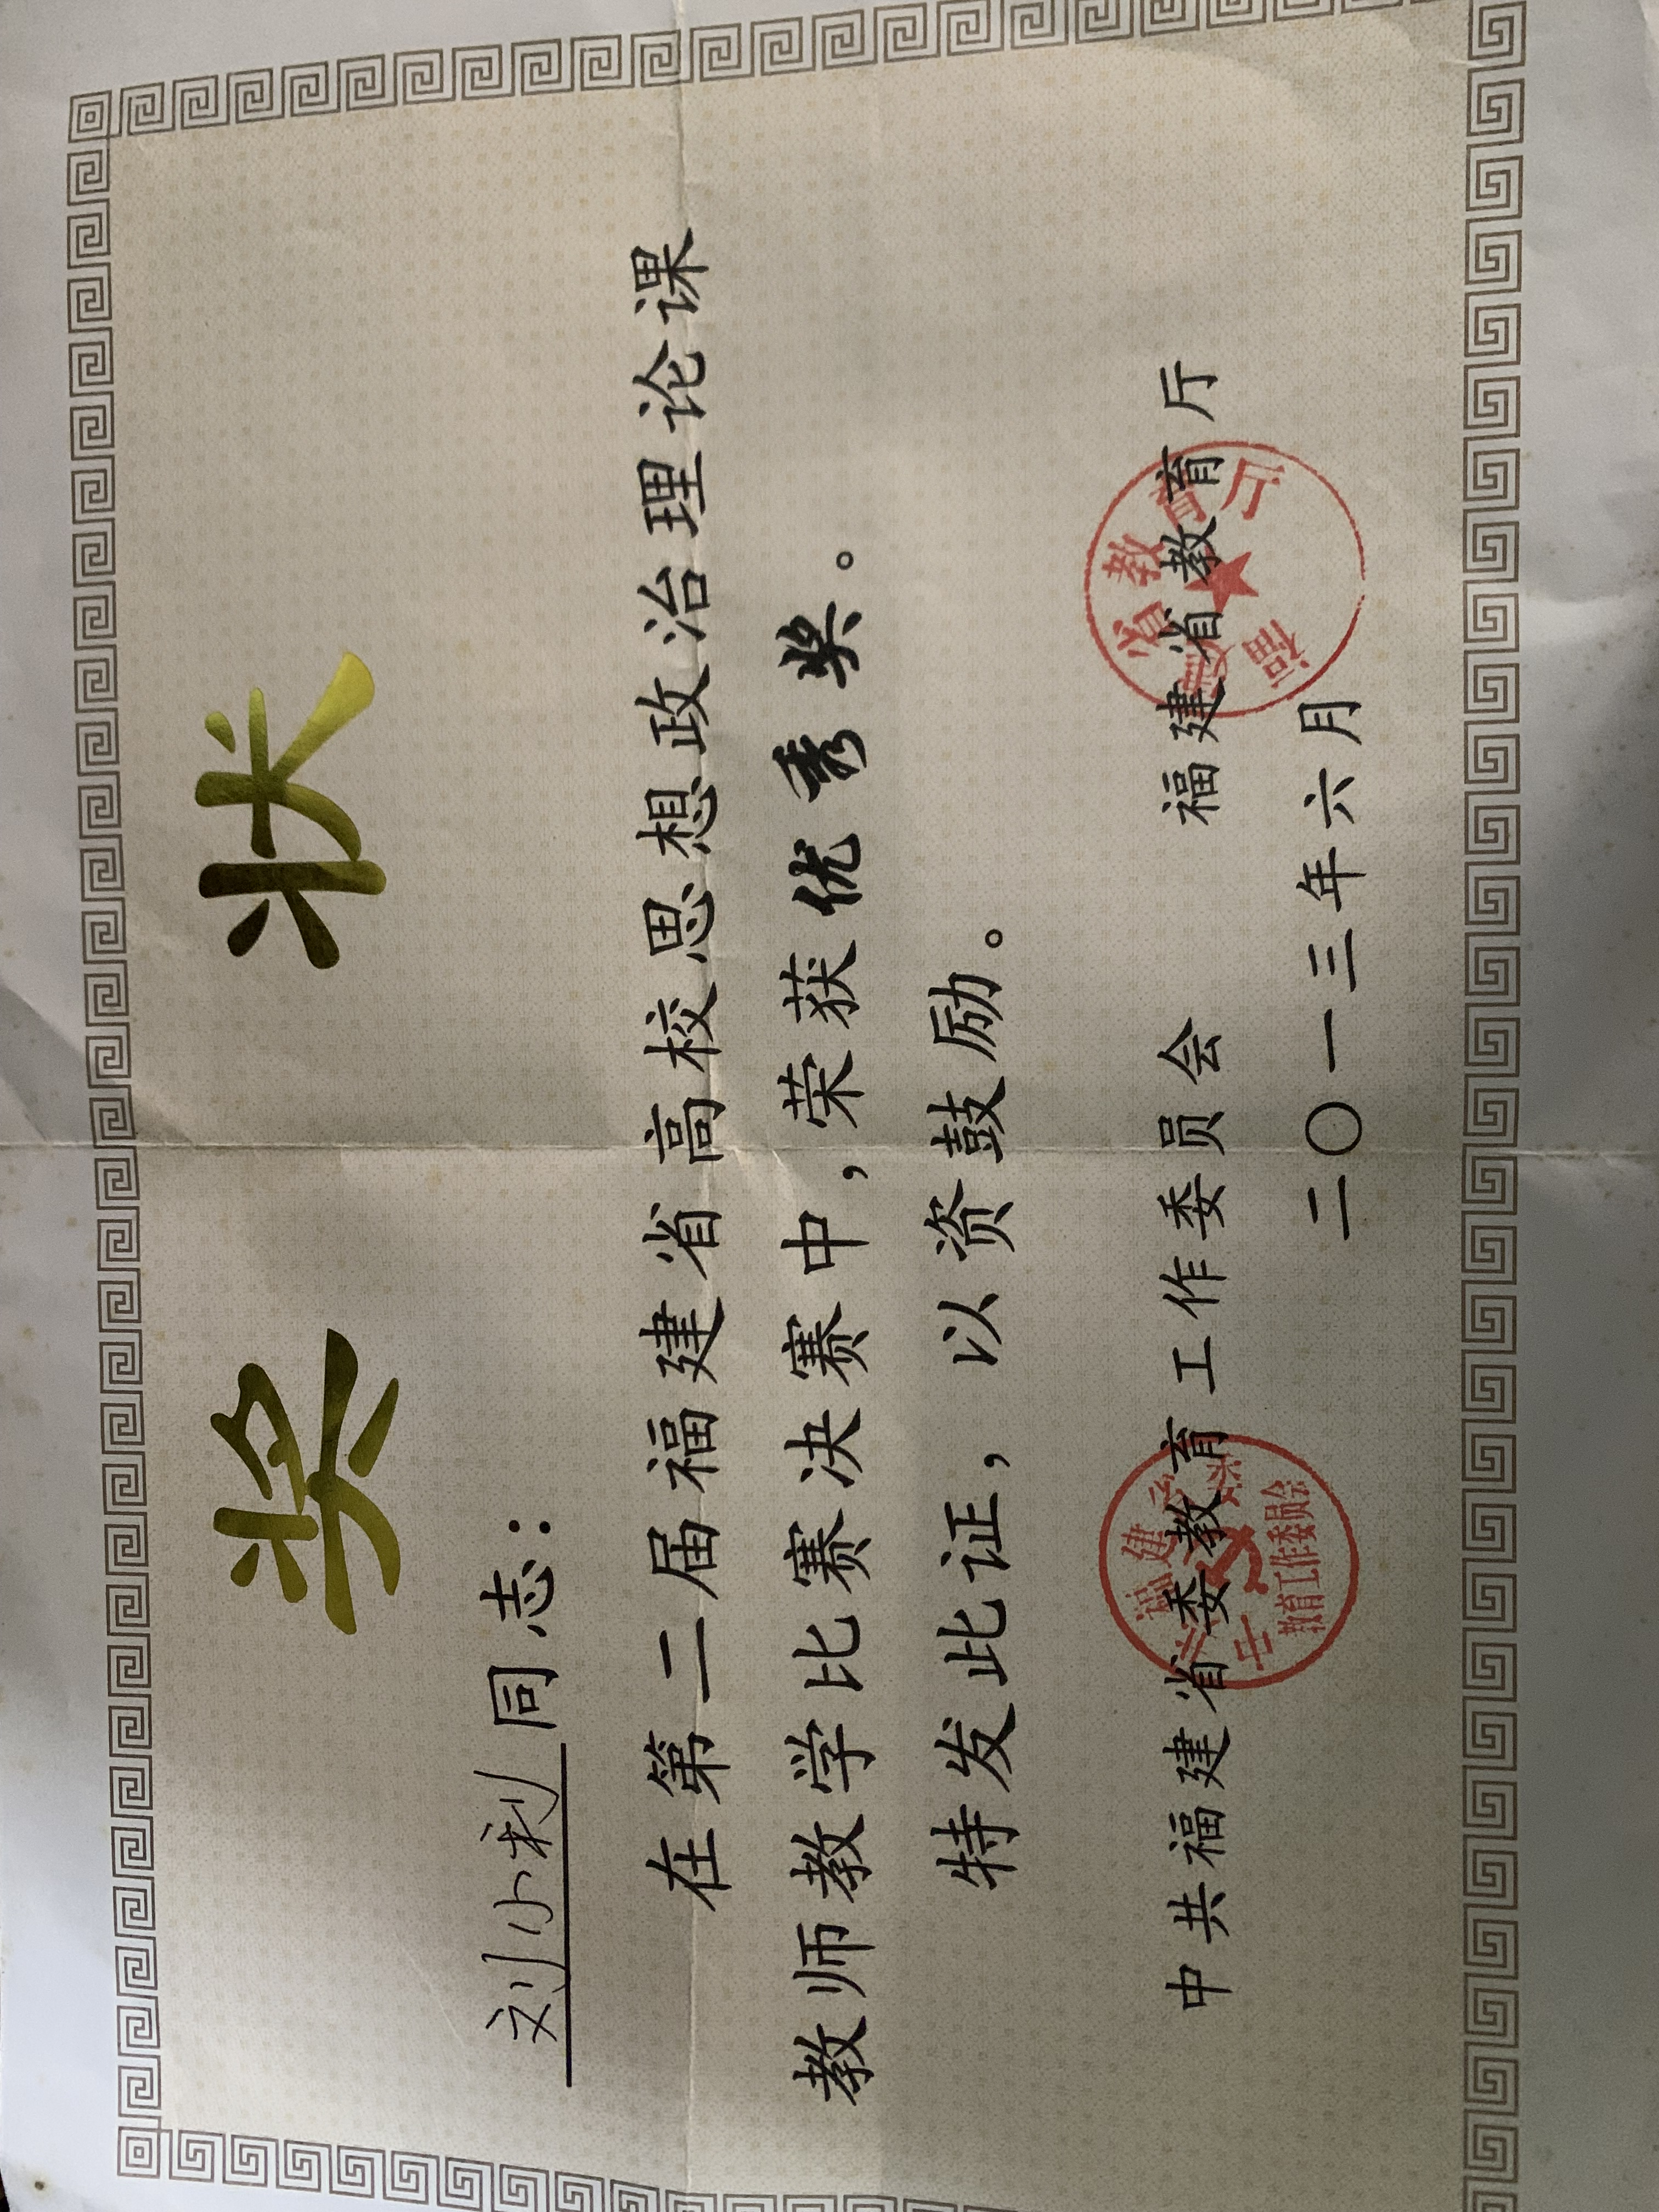 奖 状
刘小利同志：
在第二届福建省高校思想政治理论课
教师教学比赛决赛中，荣获优秀奖。
特发此证，以资鼓励。
中共福建省委教育工作委员会 福建省教育厅
二〇一三年六月
福建省教育厅
教育工作委员会